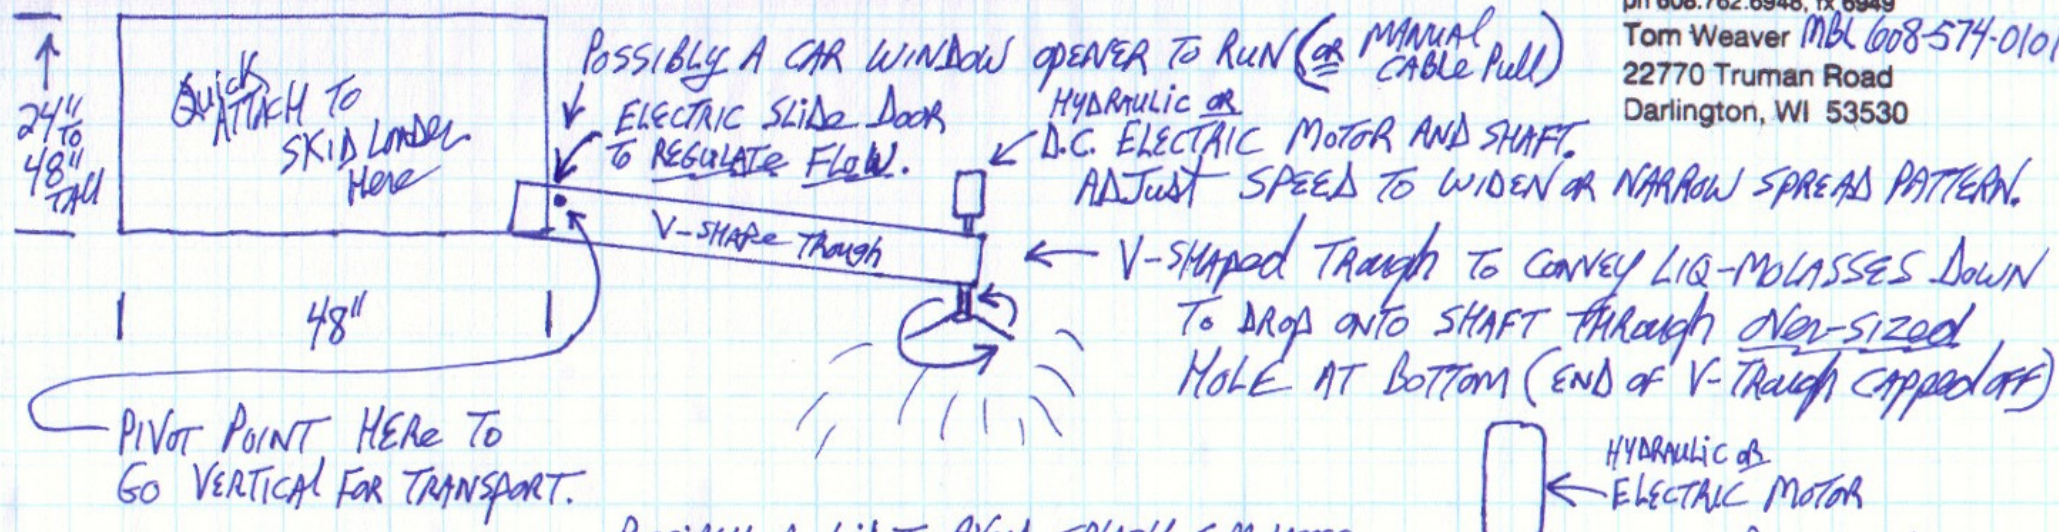 ph 608.762.6948, fx 6949
Tom Weaver MBL 608-574-0101
22770 Truman Road
Darlington, WI 53530
POSSIBLY A CAR WINDOW OPENER TO RUN (OR MANUAL CABLE PULL)
ELECTRIC SLIDE DOOR
TO REGULATE FLOW.
HYDRAULIC OR
D.C. ELECTRIC MOTOR AND SHAFT.
ADJUST SPEED TO WIDEN OR NARROW SPREAD PATTERN.
24" TO 48" TALL
Quick
ATTACH TO
SKID LOADER
Here
V-SHAPE Trough
V-SHAPED TROUGH TO CONVEY LIQ-MOLASSES DOWN
TO DROP ONTO SHAFT THROUGH OVER-SIZED
HOLE AT BOTTOM (END OF V-TROUGH CAPPED OFF)
48"
PIVOT POINT HERE TO
GO VERTICAL FOR TRANSPORT.
HYDRAULIC OR
ELECTRIC MOTOR